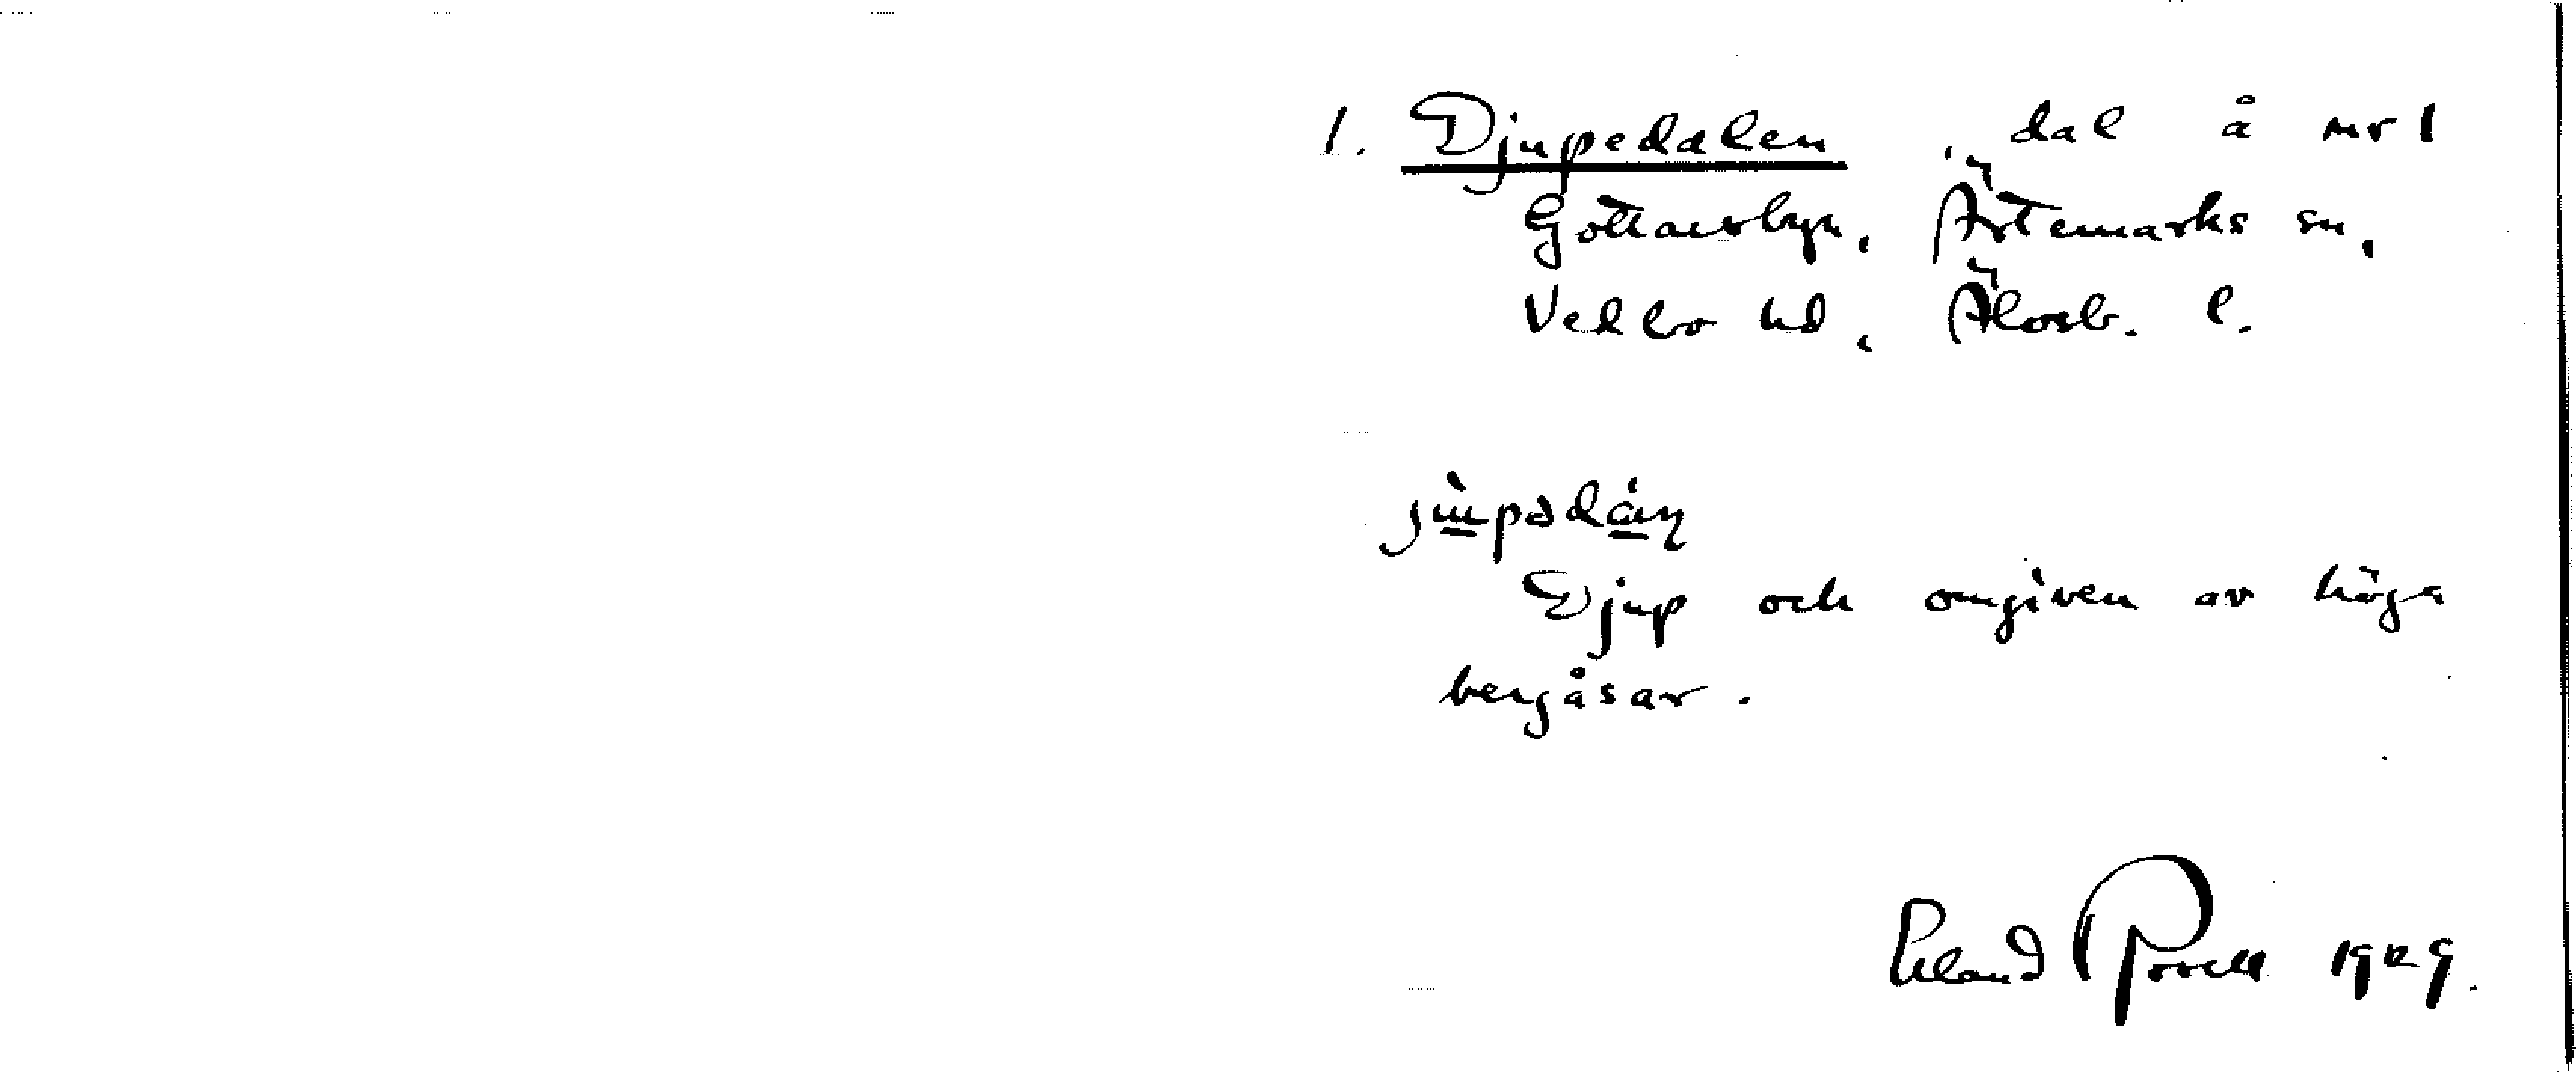 1. Djupedalen, dal å nr 1
Gottarsbyn, Ärtemarks sn,
Vedbo hd, Älvsb. l.
Djup och omgiven av höga
bergåsar.
Erland Rosell 1929.